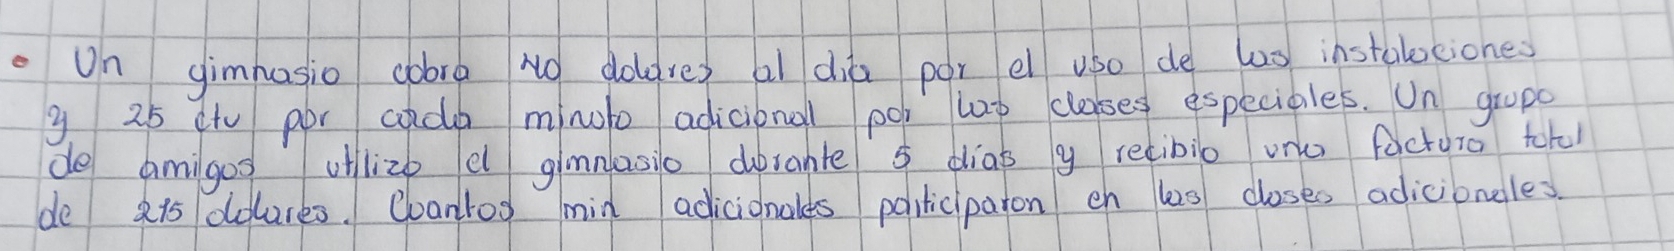 • Un gimnasio cobra 40 dolares al dia por el uso de las instalaciones
y 25 ctv por cada minuto adicional por las clases especiales. Un grupo
de amigos utilizo el gimnasio durante 5 dias y recibio una factura total
de 215 dolares. Cuantos min adicionales participaron en las clases adicionales.